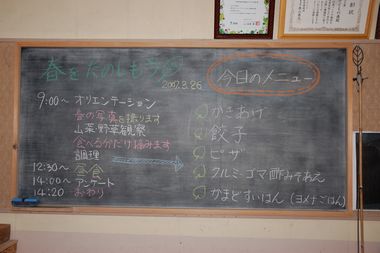 春をたのしもう会
2007.3.26
9:00~ オリエンテーション
春の写真を撮ります
山菜・野草観察
食べる分だけ摘みます
調理
12:30~ 昼食
14:00~ アンケート
14:20 おわり
今日のメニュー
かきあげ
餃子
ピザ
クルミ・ゴマ酢みそあえ
かまどすいはん(ヨメナごはん)